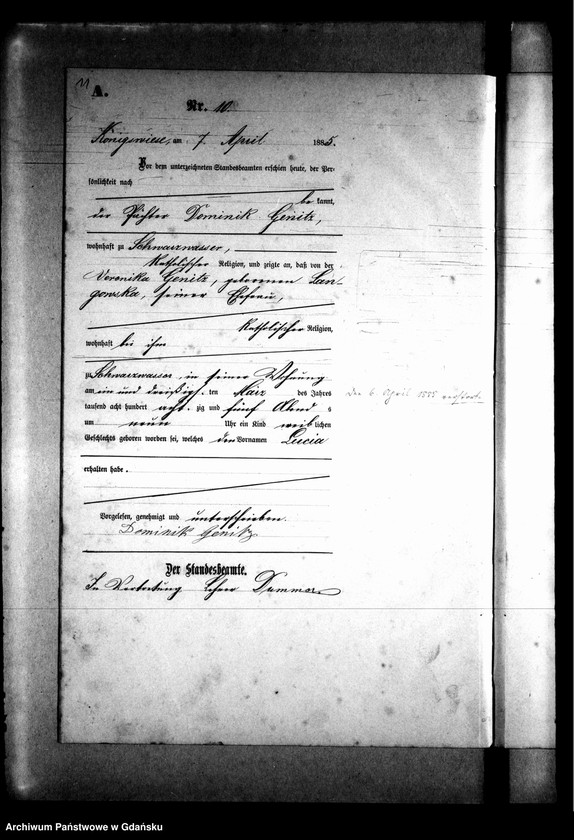 11
A.
Nr. 10.
Königswiese, am 7. April 1885.
Vor dem unterzeichneten Standesbeamten erschien heute, der Per-
sönlichkeit nach
be kannt,
der Pächter Dominik Genitz,
wohnhaft zu Schwarzwasser,
katholischer Religion, und zeigte an, daß von der
Veronika Genitz, geborenen Lan-
gowska, seiner Ehefrau,
katholischer Religion,
wohnhaft bei ihm
zu Schwarzwasser in seiner Wohnung
am ein und dreißig ten März des Jahres
tausend acht hundert acht zig und fünf Abend s
um neun Uhr ein Kind weib lichen
Geschlechts geboren worden sei, welches den Vornamen Lucia
erhalten habe.
Vorgelesen, genehmigt und unterschrieben.
Dominik Genitz
Der Standesbeamte.
In Vertretung Lehrer
Den 6 April
Archiwum Państwowe w Gdańsku